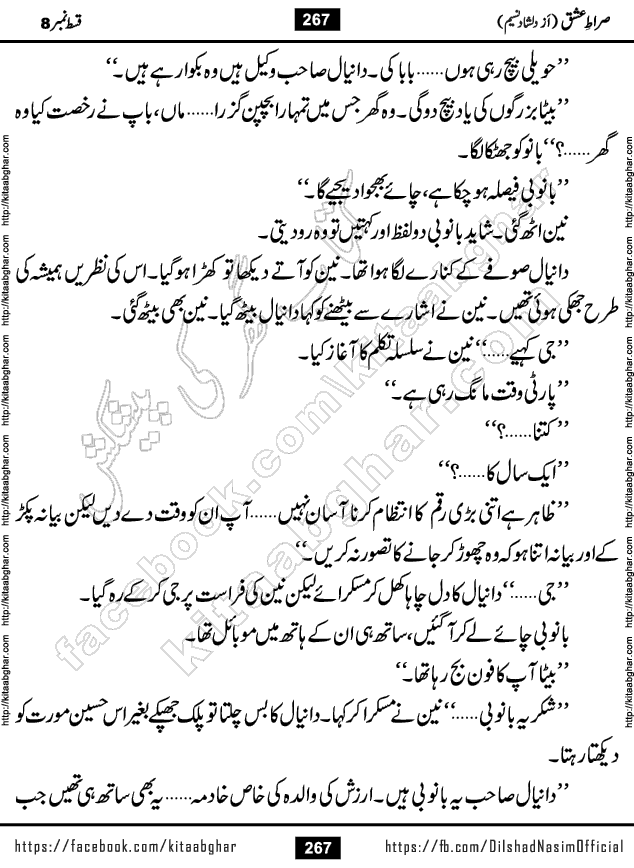 صراطِ عشق (از دلشاد نسیم)
267
قسط نمبر 8
’’حویلی بیچ رہی ہوں......بابا کی۔ دانیال صاحب وکیل ہیں وہ بکوا رہے ہیں۔‘‘
’’بیٹا بزرگوں کی یاد بیچ دو گی۔ وہ گھر جس میں تمہارا بچپن گزرا......ماں، باپ نے رخصت کیا وہ
گھر......؟‘‘ بانو کو جھٹکا لگا۔
’’بانو بی فیصلہ ہو چکا ہے، چائے بھجوا دیجیے گا۔‘‘
نین اٹھ گئی۔ شاید بانو بی دو لفظ اور کہتیں تو وہ رو دیتی۔
دانیال صوفے کے کنارے لگا ہوا تھا۔ نین کو آتے دیکھا تو کھڑا ہو گیا۔ اس کی نظریں ہمیشہ کی
طرح جھکی ہوئی تھیں۔ نین نے اشارے سے بیٹھنے کو کہا دانیال بیٹھ گیا۔ نین بھی بیٹھ گئی۔
’’جی کہیے......‘‘ نین نے سلسلہ تکلم کا آغاز کیا۔
’’پارٹی وقت مانگ رہی ہے۔‘‘
’’کتنا......؟‘‘
’’ایک سال کا......؟‘‘
’’ظاہر ہے اتنی بڑی رقم کا انتظام کرنا آسان نہیں......آپ ان کو وقت دے دیں لیکن بیانہ پکڑ
کے اور بیانہ اتنا ہو کہ وہ چھوڑ کر جانے کا تصور نہ کریں۔‘‘
’’جی......‘‘ دانیال کا دل چاہا کھل کر مسکرائے لیکن نین کی فراست پر جی کر کے رہ گیا۔
بانو بی چائے لے کر آ گئیں، ساتھ ہی ان کے ہاتھ میں موبائل تھا۔
’’بیٹا آپ کا فون بج رہا تھا۔‘‘
’’شکریہ بانو بی......‘‘ نین نے مسکرا کر کہا۔ دانیال کا بس چلتا تو پلک جھپکے بغیر اس حسین مورت کو
دیکھتا رہتا۔
’’دانیال صاحب یہ بانو بی ہیں۔ ارزش کی والدہ کی خاص خادمہ......یہ بھی ساتھ ہی تھیں جب
http://kitaabghar.com http://kitaabghar.com http://kitaabghar.com http://kitaabghar.com http://kitaabghar.com http://kitaabghar.com
http://kitaabghar.com http://kitaabghar.com http://kitaabghar.com http://kitaabghar.com http://kitaabghar.com http://kitaabghar.com
کتاب گھر کی پیشکش
facebook.com\kitaabghar
kitaabghar.com
https://facebook.com/kitaabghar
267
https://fb.com/DilshadNasimOfficial